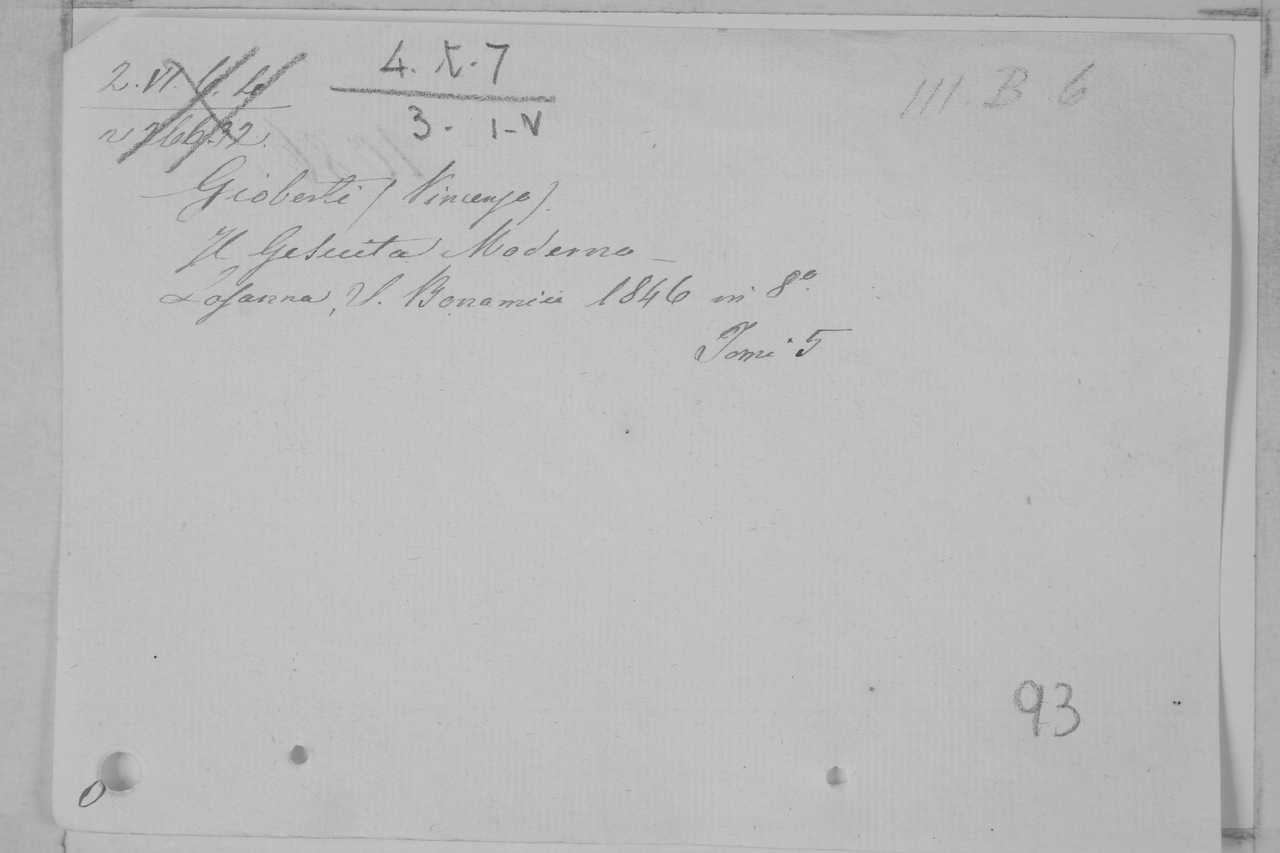 4. X. 7
3. I-V
III. B 6
Gioberti (Vincenzo).
Il Gesuita Moderno _
Losanna, S. Bonamici 1846 in 8º.
Tomi 5
93
0